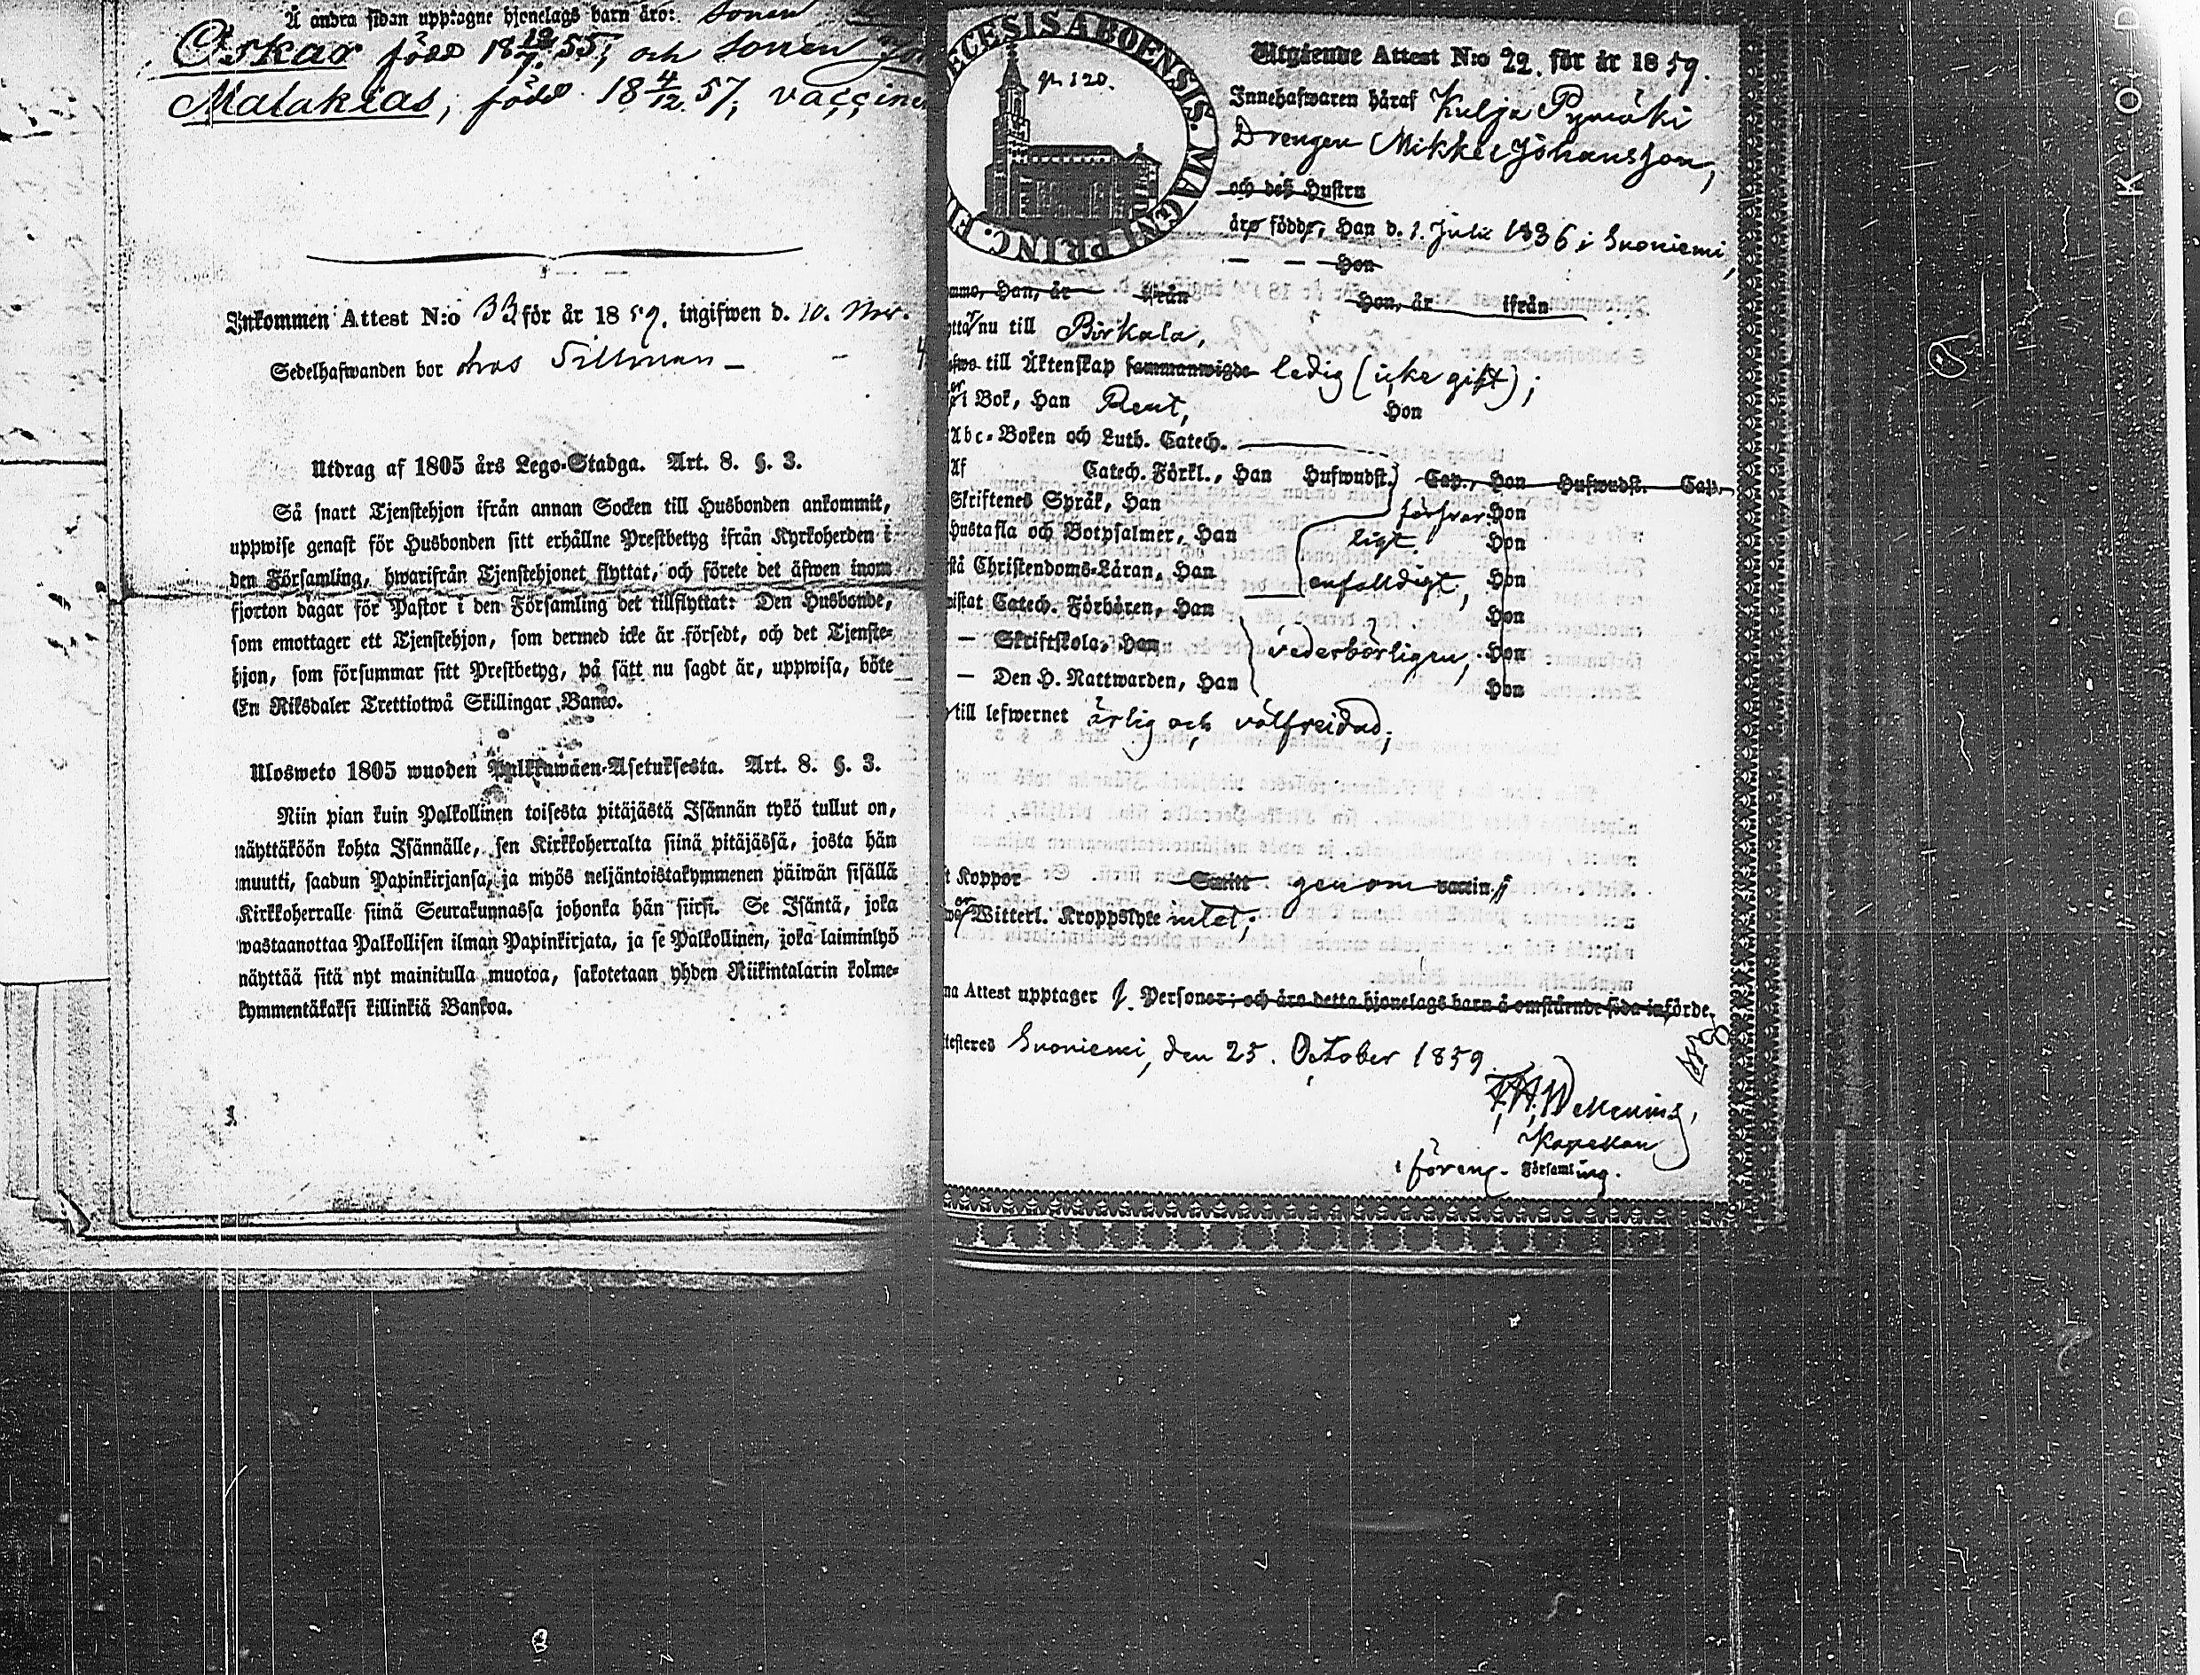 Å andra sidan upptagne hjonelags barn äro: sonen
Oskar född 18 19/7. 55; och sonen
Malakias, född 18 4/12. 57; vaccine
Inkommen Attest N:o 33 för år 1859. ingifwen d. 10. Nov.
Sedelhafwanden bor hos Sillman –
Utdrag af 1805 års Lego-Stadga. Art. 8. §. 3.
Så snart Tjenstehjon ifrån annan Socken till Husbonden ankommit,
uppwise genast för Husbonden sitt erhållne Prestbetyg ifrån Kyrkoherden i
den Församling, hwarifrån Tjenstehjonet flyttat, och förete det äfwen inom
fjorton dagar för Pastor i den Församling det tillflyttat: Den Husbonde,
som emottager ett Tjenstehjon, som dermed icke är försedt, och det Tjenste-
hjon, som försummar sitt Prestbetyg, på sätt nu sagdt är, uppwisa, böte
En Riksdaler Trettiotwå Skillingar Banco.
Ulosweto 1805 wuoden Palkkawäen-Asetuksesta. Art. 8. §. 3.
Niin pian kuin Palkollinen toisesta pitäjästä Isännän tykö tullut on,
näyttäköön kohta Isännälle, sen Kirkkoherralta siinä pitäjässä, josta hän
muutti, saadun Papinkirjansa, ja myös neljäntoistakymmenen päiwän sisällä
Kirkkoherralle siinä Seurakunnassa johonka hän siirsi. Se Isäntä, joka
wastaanottaa Palkollisen ilman Papinkirjata, ja se Palkollinen, joka laiminlyö
näyttää sitä nyt mainitulla muotoa, sakotetaan yhden Riikintalarin kolme-
kymmentäkaksi killinkiä Bankoa.
ECESIS ABOENSIS. MAGNI PRINC. FI
p. 120.
Utgående Attest N:o 22. för år 1859.
Innehafwaren häraf Kulja Pymäki
Drengen Mikkel Johansson,
och deß Hustru
äro födde, Han d. 1. Juli 1836 i Suoniemi,
– – Hon
mmo, Han, år ifrån Hon, år ifrån
nu till Birkala,
till Äktenskap sammanwigde ledig (icke gift);
i Bok, Han Rent, Hon
Abc-Boken och Luth. Catech.
Af Catech. Förkl., Han Hufwudst. Cap., Hon Hufwudst. Cap.
Skriftenes Språk, Han försvar Hon
Hustafla och Botpsalmer, Han ligt. Hon
stå Christendoms-Läran, Han enfalldigt, Hon
wistat Catech. Förhören, Han Hon
– Skriftskola, Han vederbörligen, Hon
– Den H. Nattwarden, Han Hon
till lefwernet ärlig och välfreidad;
t Koppor Smitt genom vaccin.
Witterl. Kroppslyte intet;
na Attest upptager 1. Personer; och äro detta hjonelags barn å omstående sida införde.
ttesteres Suoniemi, den 25. October 1859.
Kapellan
i förenc. Församling.
KOD